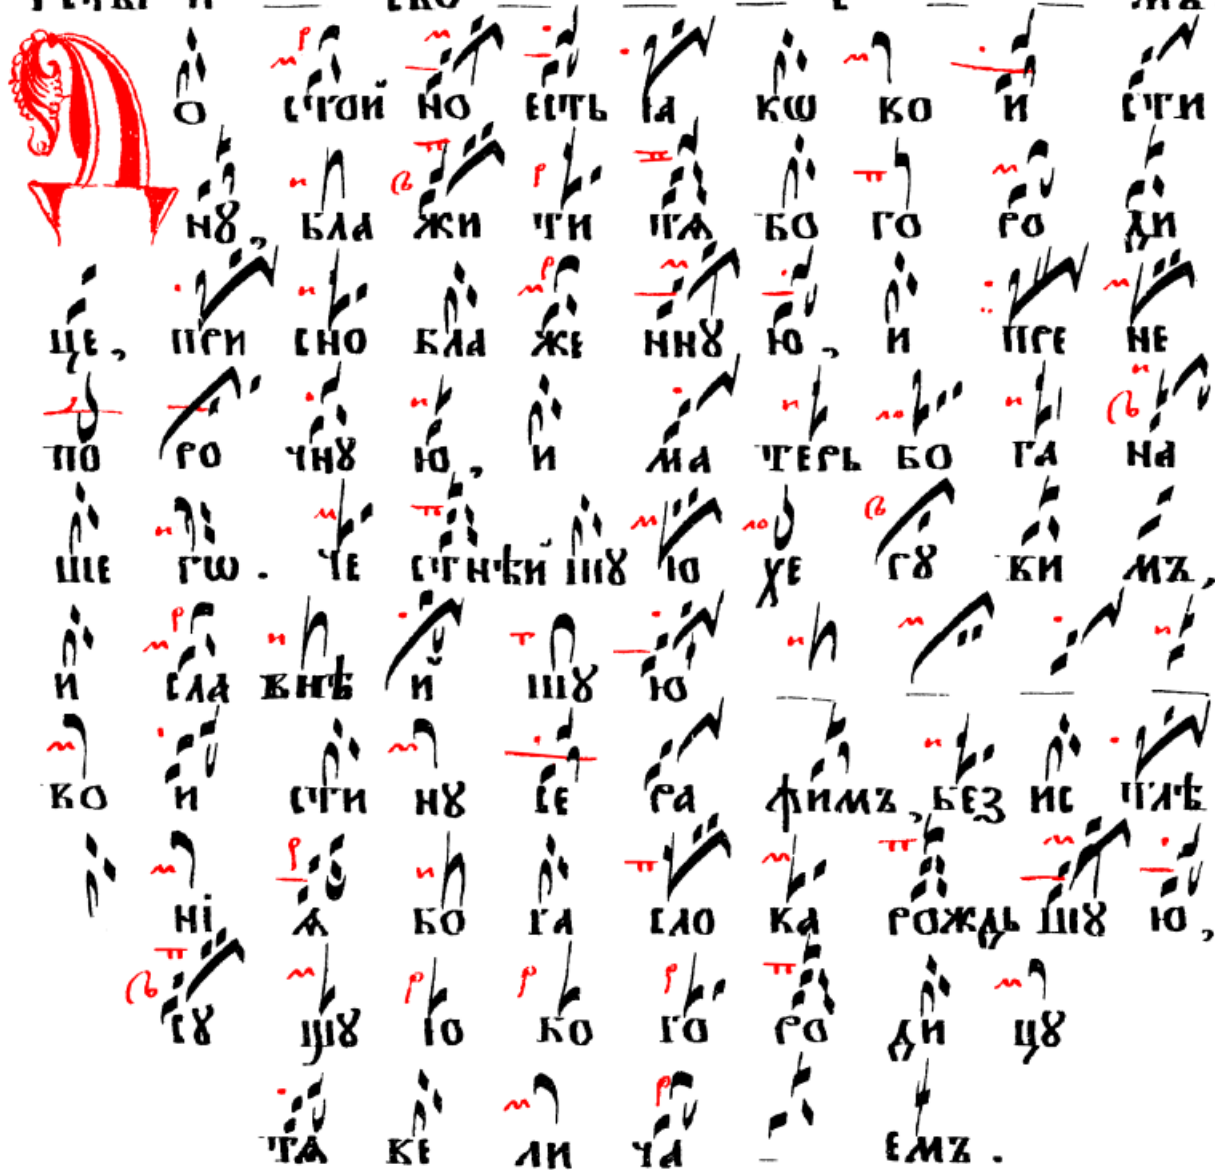 До стой но есть ꙗ кѡ во и сти
нꙋ, бла жи ти тѧ бо го ро ди
це, при сно бла же ннꙋ ю, и пре не
по ро чнꙋ ю, и ма терь бо га на
ше гѡ. че стнѣй шꙋ ю хе рꙋ вимъ,
и сла внѣ й шꙋ ю
во и сти нꙋ се ра фимъ, без ис тлѣ
нї ѧ бо га сло ва рождь шꙋ ю,
сꙋ щꙋ ю бо го ро ди цꙋ
тѧ ве ли ча емъ.